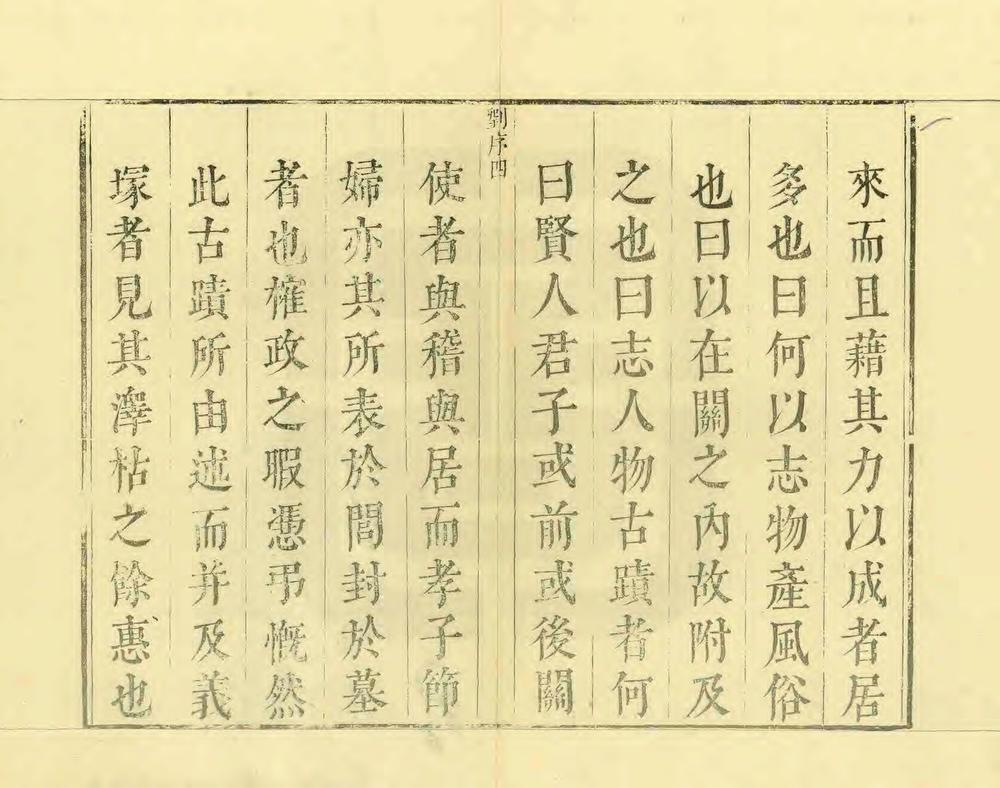 來而且藉其力以成者居
多也曰何以志物產風俗
也曰以在關之內故附及
之也曰志人物古蹟者何
曰賢人君子或前或後關
劉序四
使者與稽與居而孝子節
婦亦其所表於閭封於墓
者也榷政之暇憑弔慨然
此古蹟所由述而并及義
塚者見其澤枯之餘惠也